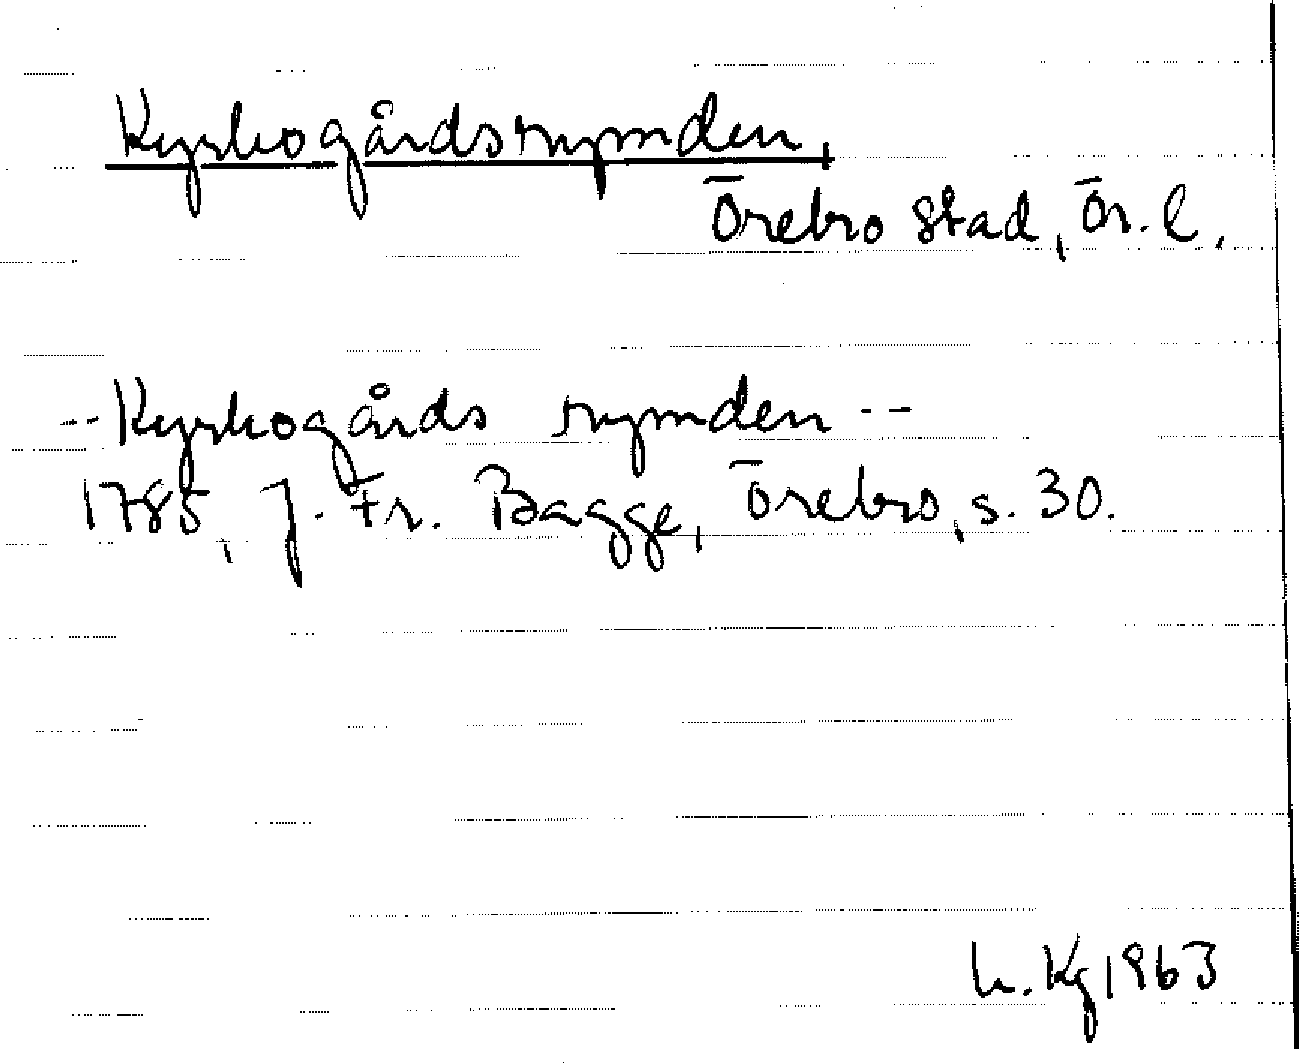 Kyrkogårdsrymden,
Örebro stad, Ör. l.
-- Kyrkogårds rymden --
1785, J. Fr. Bagge, Örebro, s. 30.
Kg 1963